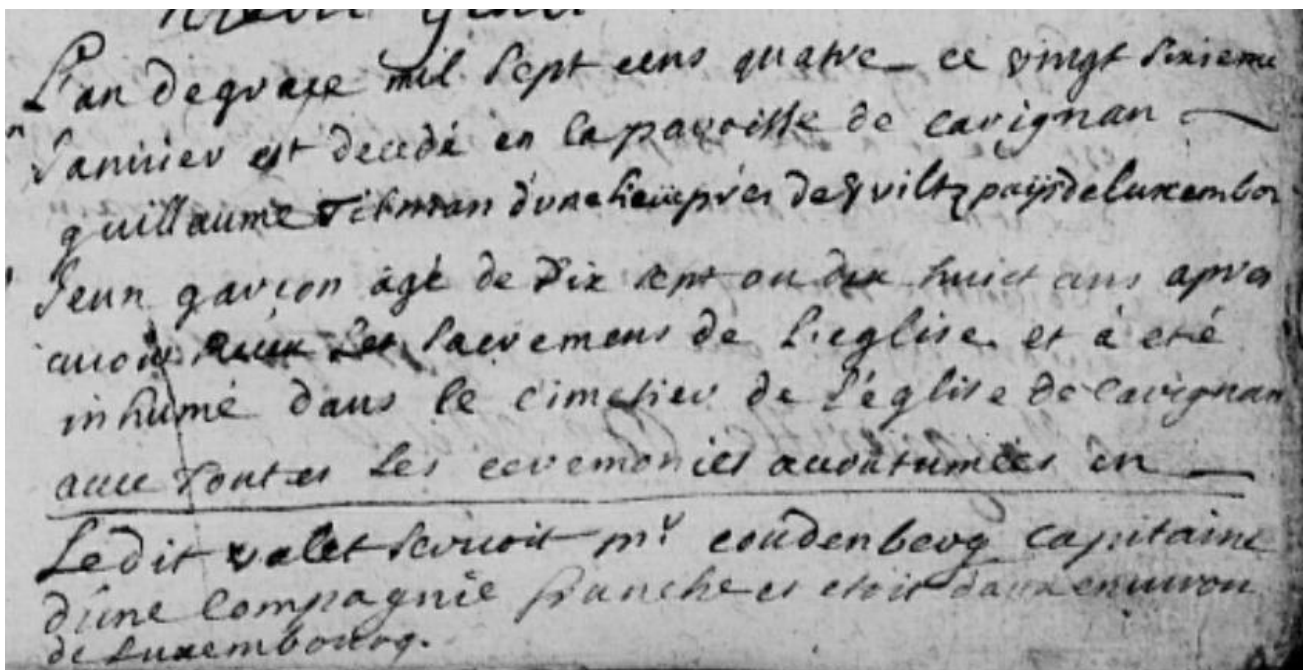 L'an de grace mil sept cens quatre ce vingt sixieme
Janvier est decedé en la paroisse de carignan
guillaume Tilman d'une heure pres de viltz païs de luxembor
Jeun garçon agé de dix sept ou dix huict ans apres
auoir les sacremens de L'eglise et à eté
inhumé dans le cimetier de l'église de carignan
auec toutes les ceremonies accoutumées en
Ledit valet seruoit mr coudenberg capitaine
d'une compagnie franche et etoit d'aux enuiron
de Luxembourg.